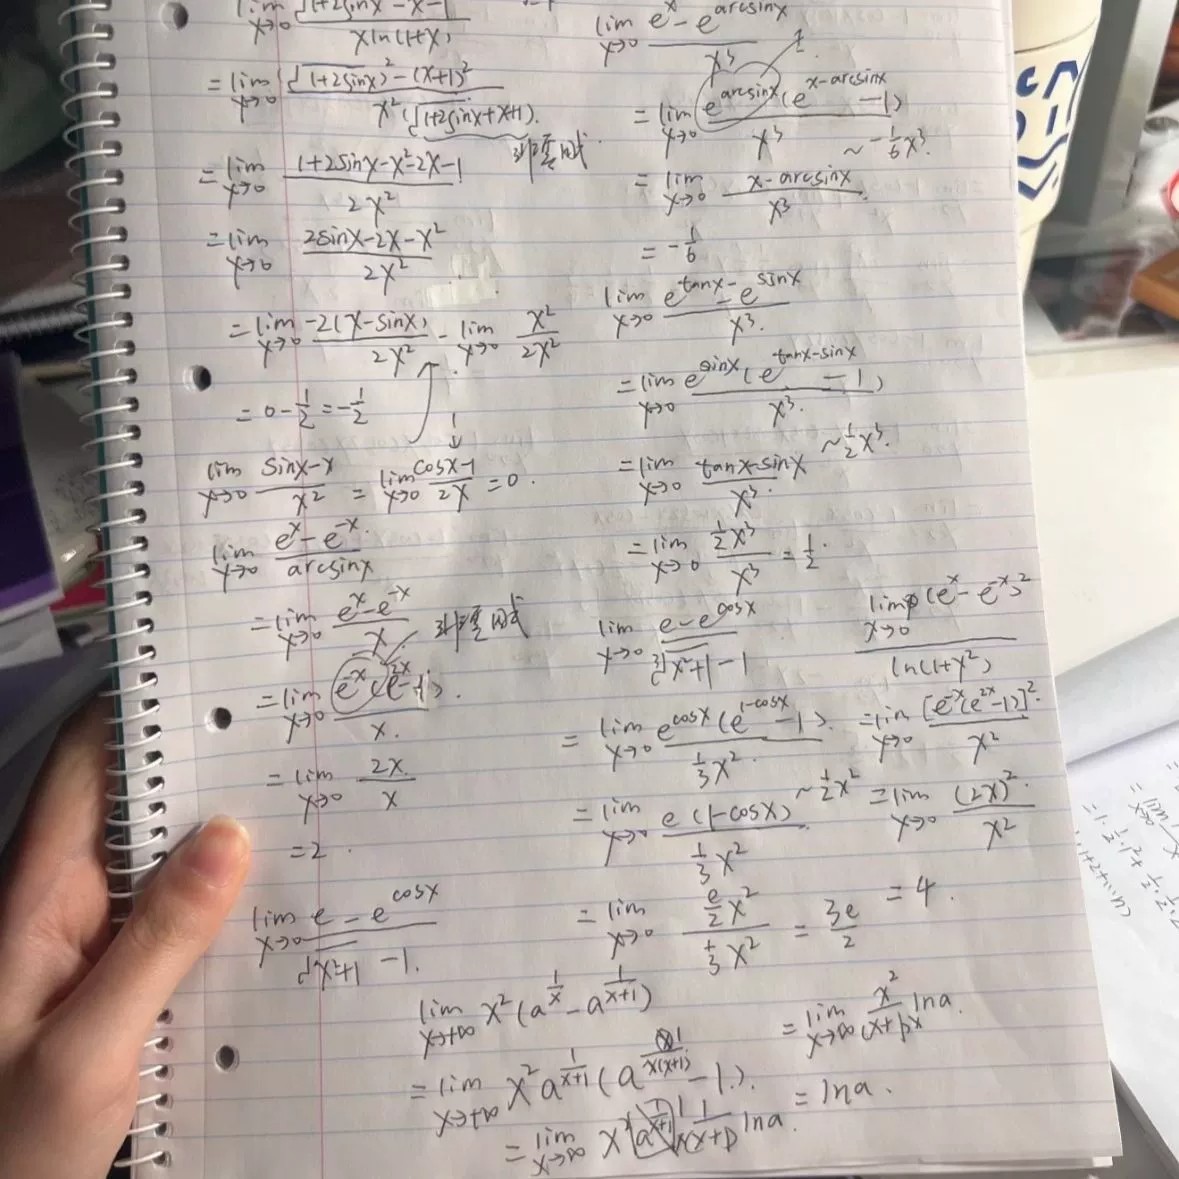 lim x→0 (√(1+2sinx) - x - 1)/(xln(1+x))
= lim x→0 (√(1+2sinx)² - (x+1)²)/(x²(√(1+2sinx)+x+1)).
= lim x→0 (1+2sinx-x²-2x-1)/(2x²)
= lim x→0 (2sinx-2x-x²)/(2x²)
= lim x→0 (-2(x-sinx))/(2x²) - lim x→0 x²/(2x²)
= 0 - 1/2 = -1/2
lim x→0 (sinx-x)/x² = lim x→0 (cosx-1)/(2x) = 0.
lim x→0 (e^x - e^(-x))/arcsinx
= lim x→0 (e^x - e^(-x))/x
非零因式
= lim x→0 (e^(-x)(e^(2x)-1))/x.
= lim x→0 2x/x
= 2.
lim x→0 (e - e^(cosx))/(√(x²+1) - 1).
lim x→0 (e^x - e^(arcsinx))/x³
1
= lim x→0 (e^(arcsinx)(e^(x-arcsinx) - 1))/x³
非零因式
~ -1/6 x³.
= lim x→0 (x-arcsinx)/x³.
= -1/6
lim x→0 (e^(tanx) - e^(sinx))/x³.
= lim x→0 (e^(sinx)(e^(tanx-sinx) - 1))/x³.
= lim x→0 (tanx-sinx)/x³. ~ 1/2 x³.
= lim x→0 (1/2 x³)/x³ = 1/2.
lim x→0 (e - e^(cosx))/(³√(x²+1) - 1)
= lim x→0 (e^(cosx)(e^(1-cosx) - 1))/(1/3 x²).
= lim x→0 (e(1-cosx))/(1/3 x²) ~ 1/2 x²
= lim x→0 (e/2 x²)/(1/3 x²) = 3e/2
lim x→0 (e^x - e^(-x))²/ln(1+x²)
= lim x→0 [e^(-x)(e^(2x)-1)]²/x²
= lim x→0 (2x)²/x²
= 4.
lim x→+∞ x²(a^(1/x) - a^(1/(x+1)))
= lim x→+∞ x² a^(1/(x+1)) (a^(1/(x(x+1))) - 1).
= lim x→∞ x² a^(1/(x+1)) 1/(x(x+1)) lna.
= lim x→∞ x²/((x+1)x) lna.
= lna.